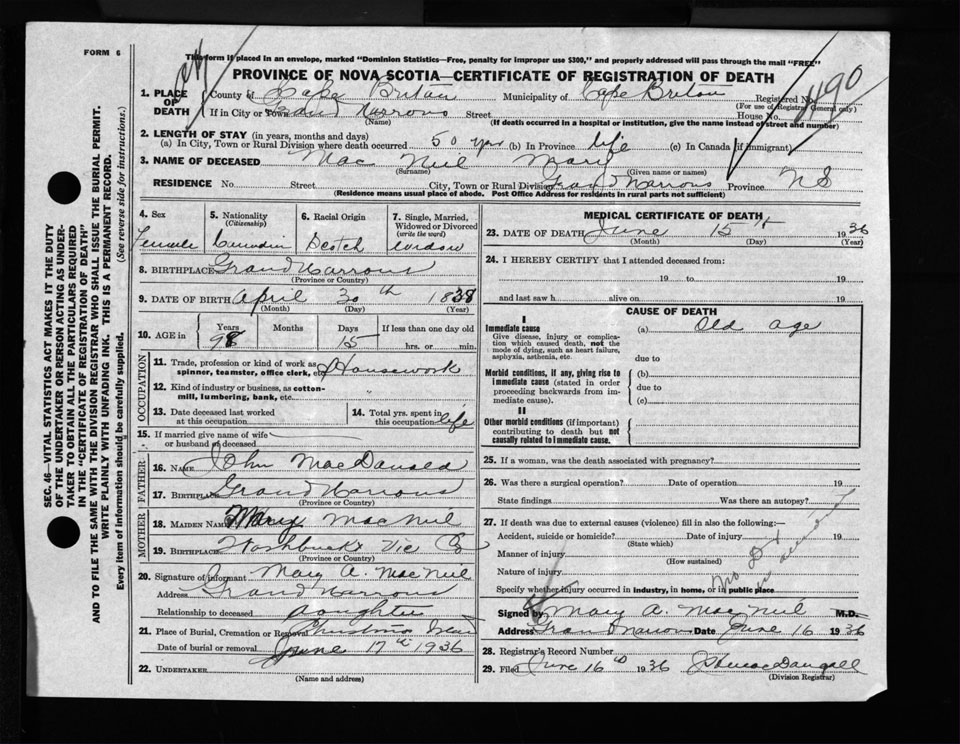 FORM 6
This form if placed in an envelope, marked "Dominion Statistics—Free, penalty for improper use $300," and properly addressed will pass through the mail "FREE"
PROVINCE OF NOVA SCOTIA—CERTIFICATE OF REGISTRATION OF DEATH
1. PLACE OF DEATH
County of Cape Breton Municipality of Cape Breton Registered No. 490
(For use of Registrar General only)
If in City or Town Grand Narrows Street House No.
(Name) (If death occurred in a hospital or institution, give the name instead of street and number)
2. LENGTH OF STAY (in years, months and days)
(a) In City, Town or Rural Division where death occurred 50 yrs (b) In Province life (c) In Canada (if immigrant)
3. NAME OF DECEASED Mac Neil Mary
(Surname) (Given name or names)
RESIDENCE No. Street City, Town or Rural Division Grand Narrows Province N S
(Residence means usual place of abode. Post Office Address for residents in rural parts not sufficient)
4. Sex Female
5. Nationality (Citizenship) Canadian
6. Racial Origin Scotch
7. Single, Married, Widowed or Divorced (write the word) widow
8. BIRTHPLACE Grand Narrows
(Province or Country)
9. DATE OF BIRTH April 30th 1838
(Month) (Day) (Year)
10. AGE in Years 98 Months Days 15 If less than one day old hrs. or min.
OCCUPATION
11. Trade, profession or kind of work as spinner, teamster, office clerk, etc. Housework
12. Kind of industry or business, as cotton-mill, lumbering, bank, etc.
13. Date deceased last worked at this occupation
14. Total yrs. spent in this occupation life
15. If married give name of wife or husband of deceased
FATHER
16. NAME John MacDonald
17. BIRTHPLACE Grand Narrows
MOTHER
18. MAIDEN NAME Mary MacNeil
19. BIRTHPLACE Washbuck Vic Co
(Province or Country)
20. Signature of informant Mary A. MacNeil
Address Grand Narrows
Relationship to deceased Daughter
21. Place of Burial, Cremation or Removal Christmas Island
Date of burial or removal June 17th 1936
22. UNDERTAKER
(Name and address)
MEDICAL CERTIFICATE OF DEATH
23. DATE OF DEATH June 15th 1936
(Month) (Day) (Year)
24. I HEREBY CERTIFY that I attended deceased from:
19 to 19
and last saw h alive on 19
CAUSE OF DEATH
I
Immediate cause (a) Old age
Give disease, injury or complication which caused death, not the mode of dying, such as heart failure, asphyxia, asthenia, etc.
due to
Morbid conditions, if any, giving rise to immediate cause (stated in order proceeding backwards from immediate cause).
(b)
due to
(c)
II
Other morbid conditions (if important) contributing to death but not causally related to immediate cause.
25. If a woman, was the death associated with pregnancy?
26. Was there a surgical operation? Date of operation 19
State findings Was there an autopsy?
27. If death was due to external causes (violence) fill in also the following:—
Accident, suicide or homicide? Date of injury 19
(State which)
Manner of injury
(How sustained)
Nature of injury
Specify whether injury occurred in industry, in home, or in public place
Signed by Mary A. MacNeil M.D.
Address Grand Narrows Date June 16 1936
28. Registrar's Record Number
29. Filed June 16th 1936
(Division Registrar)
SEC. 46—VITAL STATISTICS ACT MAKES IT THE DUTY
OF THE UNDERTAKER OR PERSON ACTING AS UNDER-
TAKER TO OBTAIN ALL THE PARTICULARS REQUIRED
IN THE "CERTIFICATE OF REGISTRATION OF DEATH"
AND TO FILE THE SAME WITH THE DIVISION REGISTRAR WHO SHALL ISSUE THE BURIAL PERMIT.
WRITE PLAINLY WITH UNFADING INK. THIS IS A PERMANENT RECORD.
Every item of information should be carefully supplied. (See reverse side for instructions.)